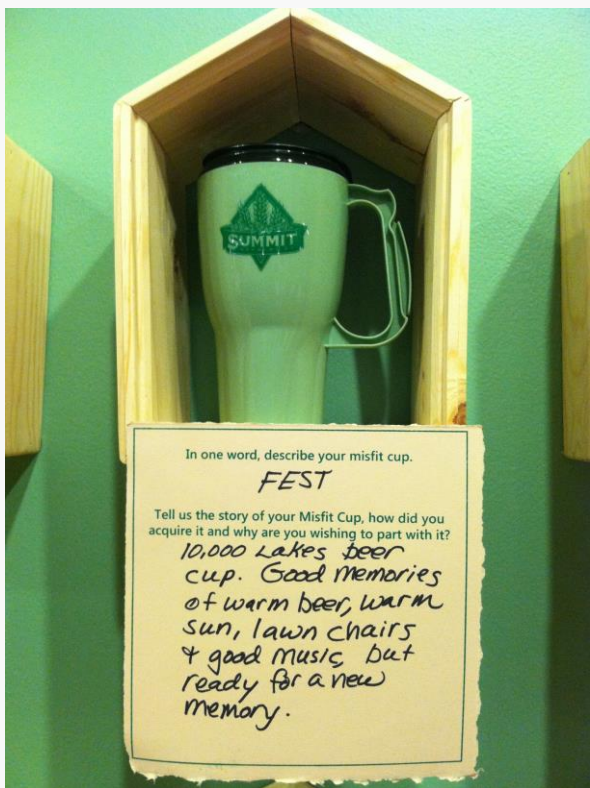 SUMMIT
In one word, describe your misfit cup.
FEST
Tell us the story of your Misfit Cup, how did you
acquire it and why are you wishing to part with it?
10,000 Lakes beer
cup. Good memories
of warm beer, warm
sun, lawn chairs
& good music, but
ready for a new
memory.